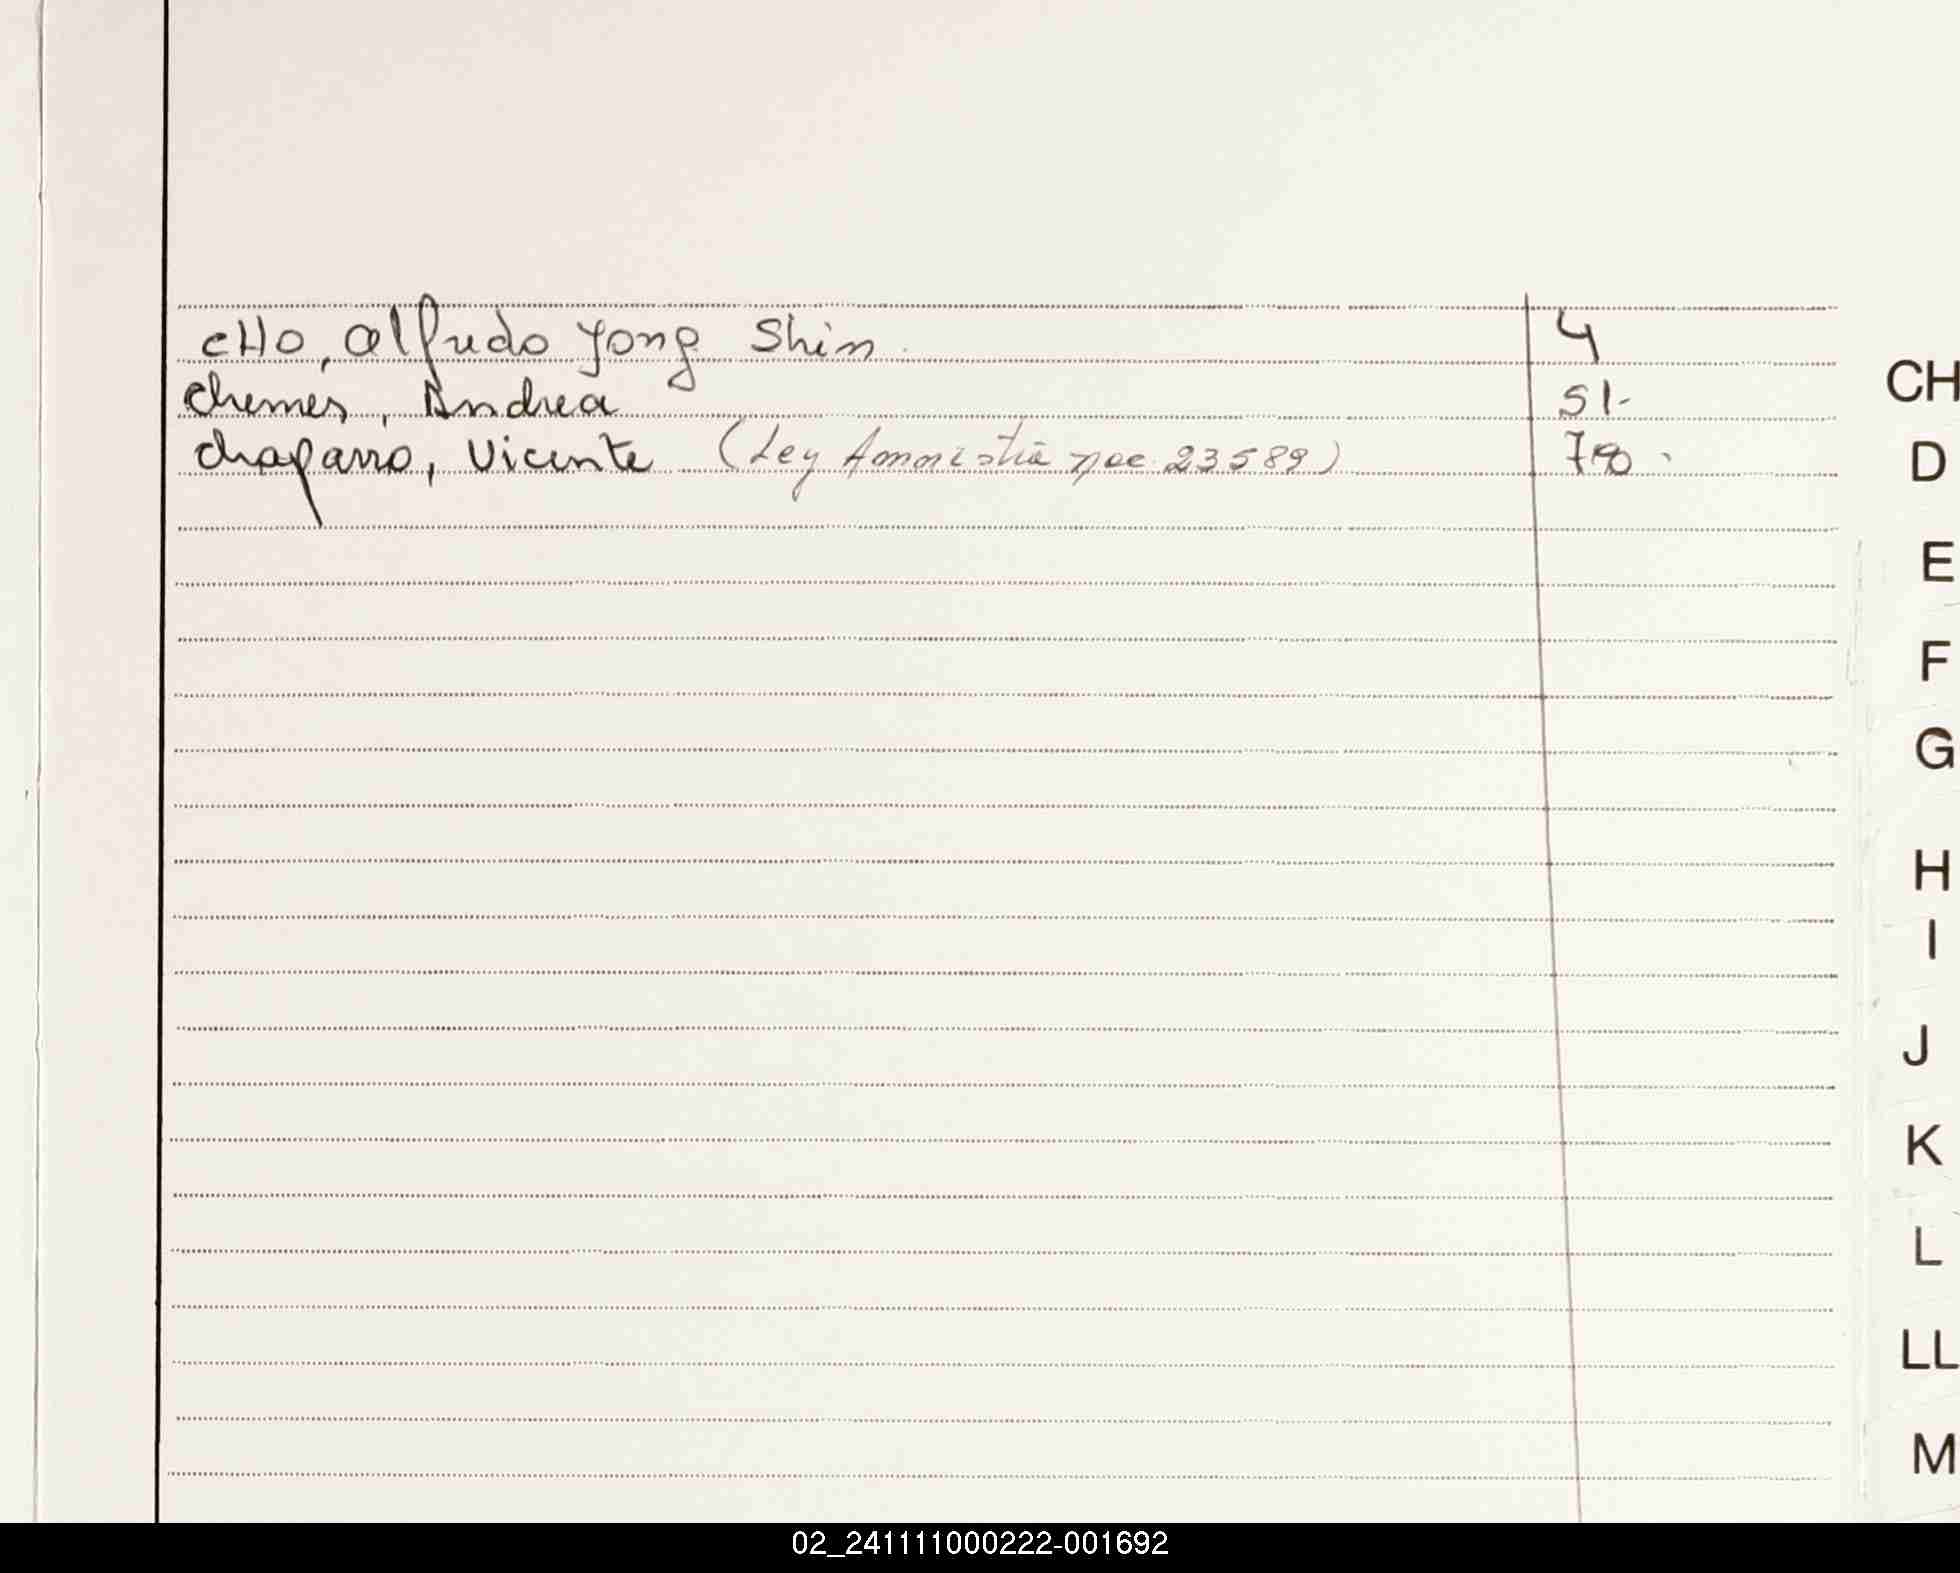 CHO, Alfredo Yong Shin. 4
Chemes, Andrea 51-
Chaparro, Vicente (Ley Amnistia nac. 23589)
CH
D
E
F
G
H
I
J
K
L
LL
M
02_241111000222-001692